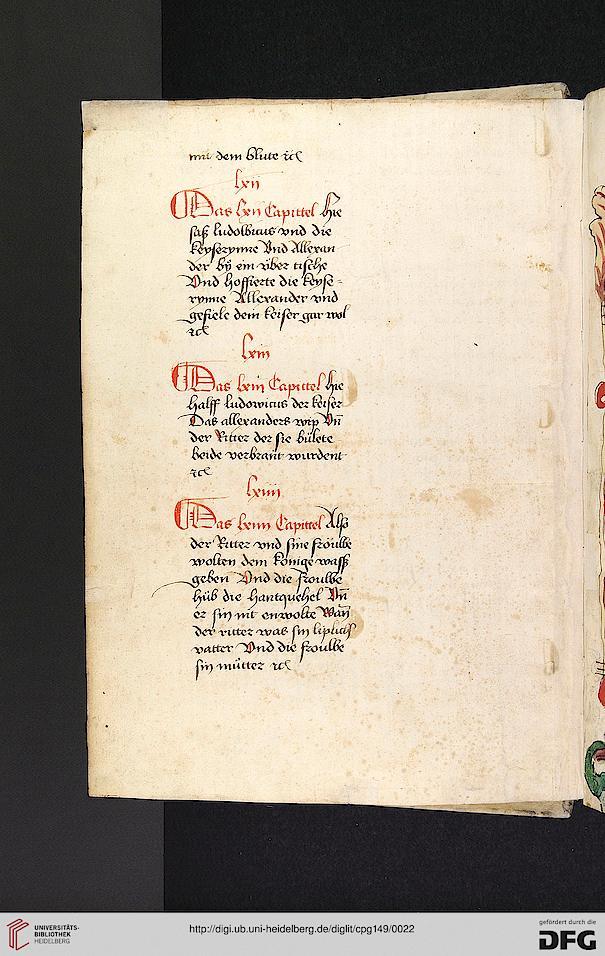 mit dem blute ꝛc
lxii
Das lxii Capittel hie
saß ludolbicus vnd die
keyserynne Vnd Allexan
der by̆ ein vber tische
Vnd hoffierte die keyse=
rynne Allexander vnd
gefiele dem keiser gar wol
ꝛc
lxiii
Das lxiii Capittel hie
halff ludowicus der keiser
Das allexanders wip Vn̄
der Ritter der sie bulete
beide verbrant wurdent
ꝛc
lxiiii
Das lxiiii Capittel Alß
der Ritter vnd sine frouwe
wolten dem konige wasß
geben Vnd die frouwe
hůb die hantquehel Vn̄
er sin nit enwolte Wan̄
der ritter was sin liplich
vatter Vnd die frouwe
sin můtter ꝛc
UNIVERSITÄTS-
BIBLIOTHEK
HEIDELBERG
http://digi.ub.uni-heidelberg.de/diglit/cpg149/0022
gefördert durch die
DFG